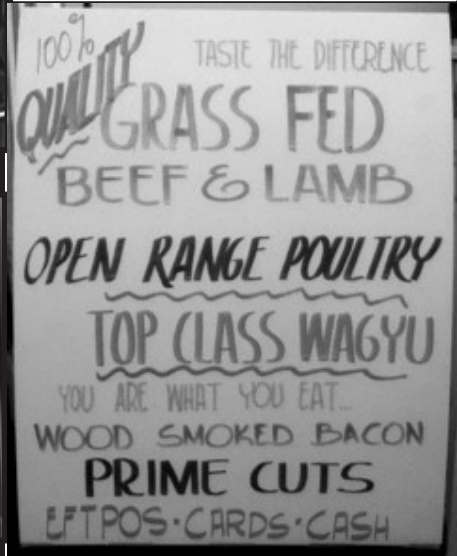 100%
QUALITY
TASTE THE DIFFERENCE
GRASS FED
BEEF & LAMB
OPEN RANGE POULTRY
TOP CLASS WAGYU
YOU ARE WHAT YOU EAT...
WOOD SMOKED BACON
PRIME CUTS
EFTPOS · CARDS · CASH